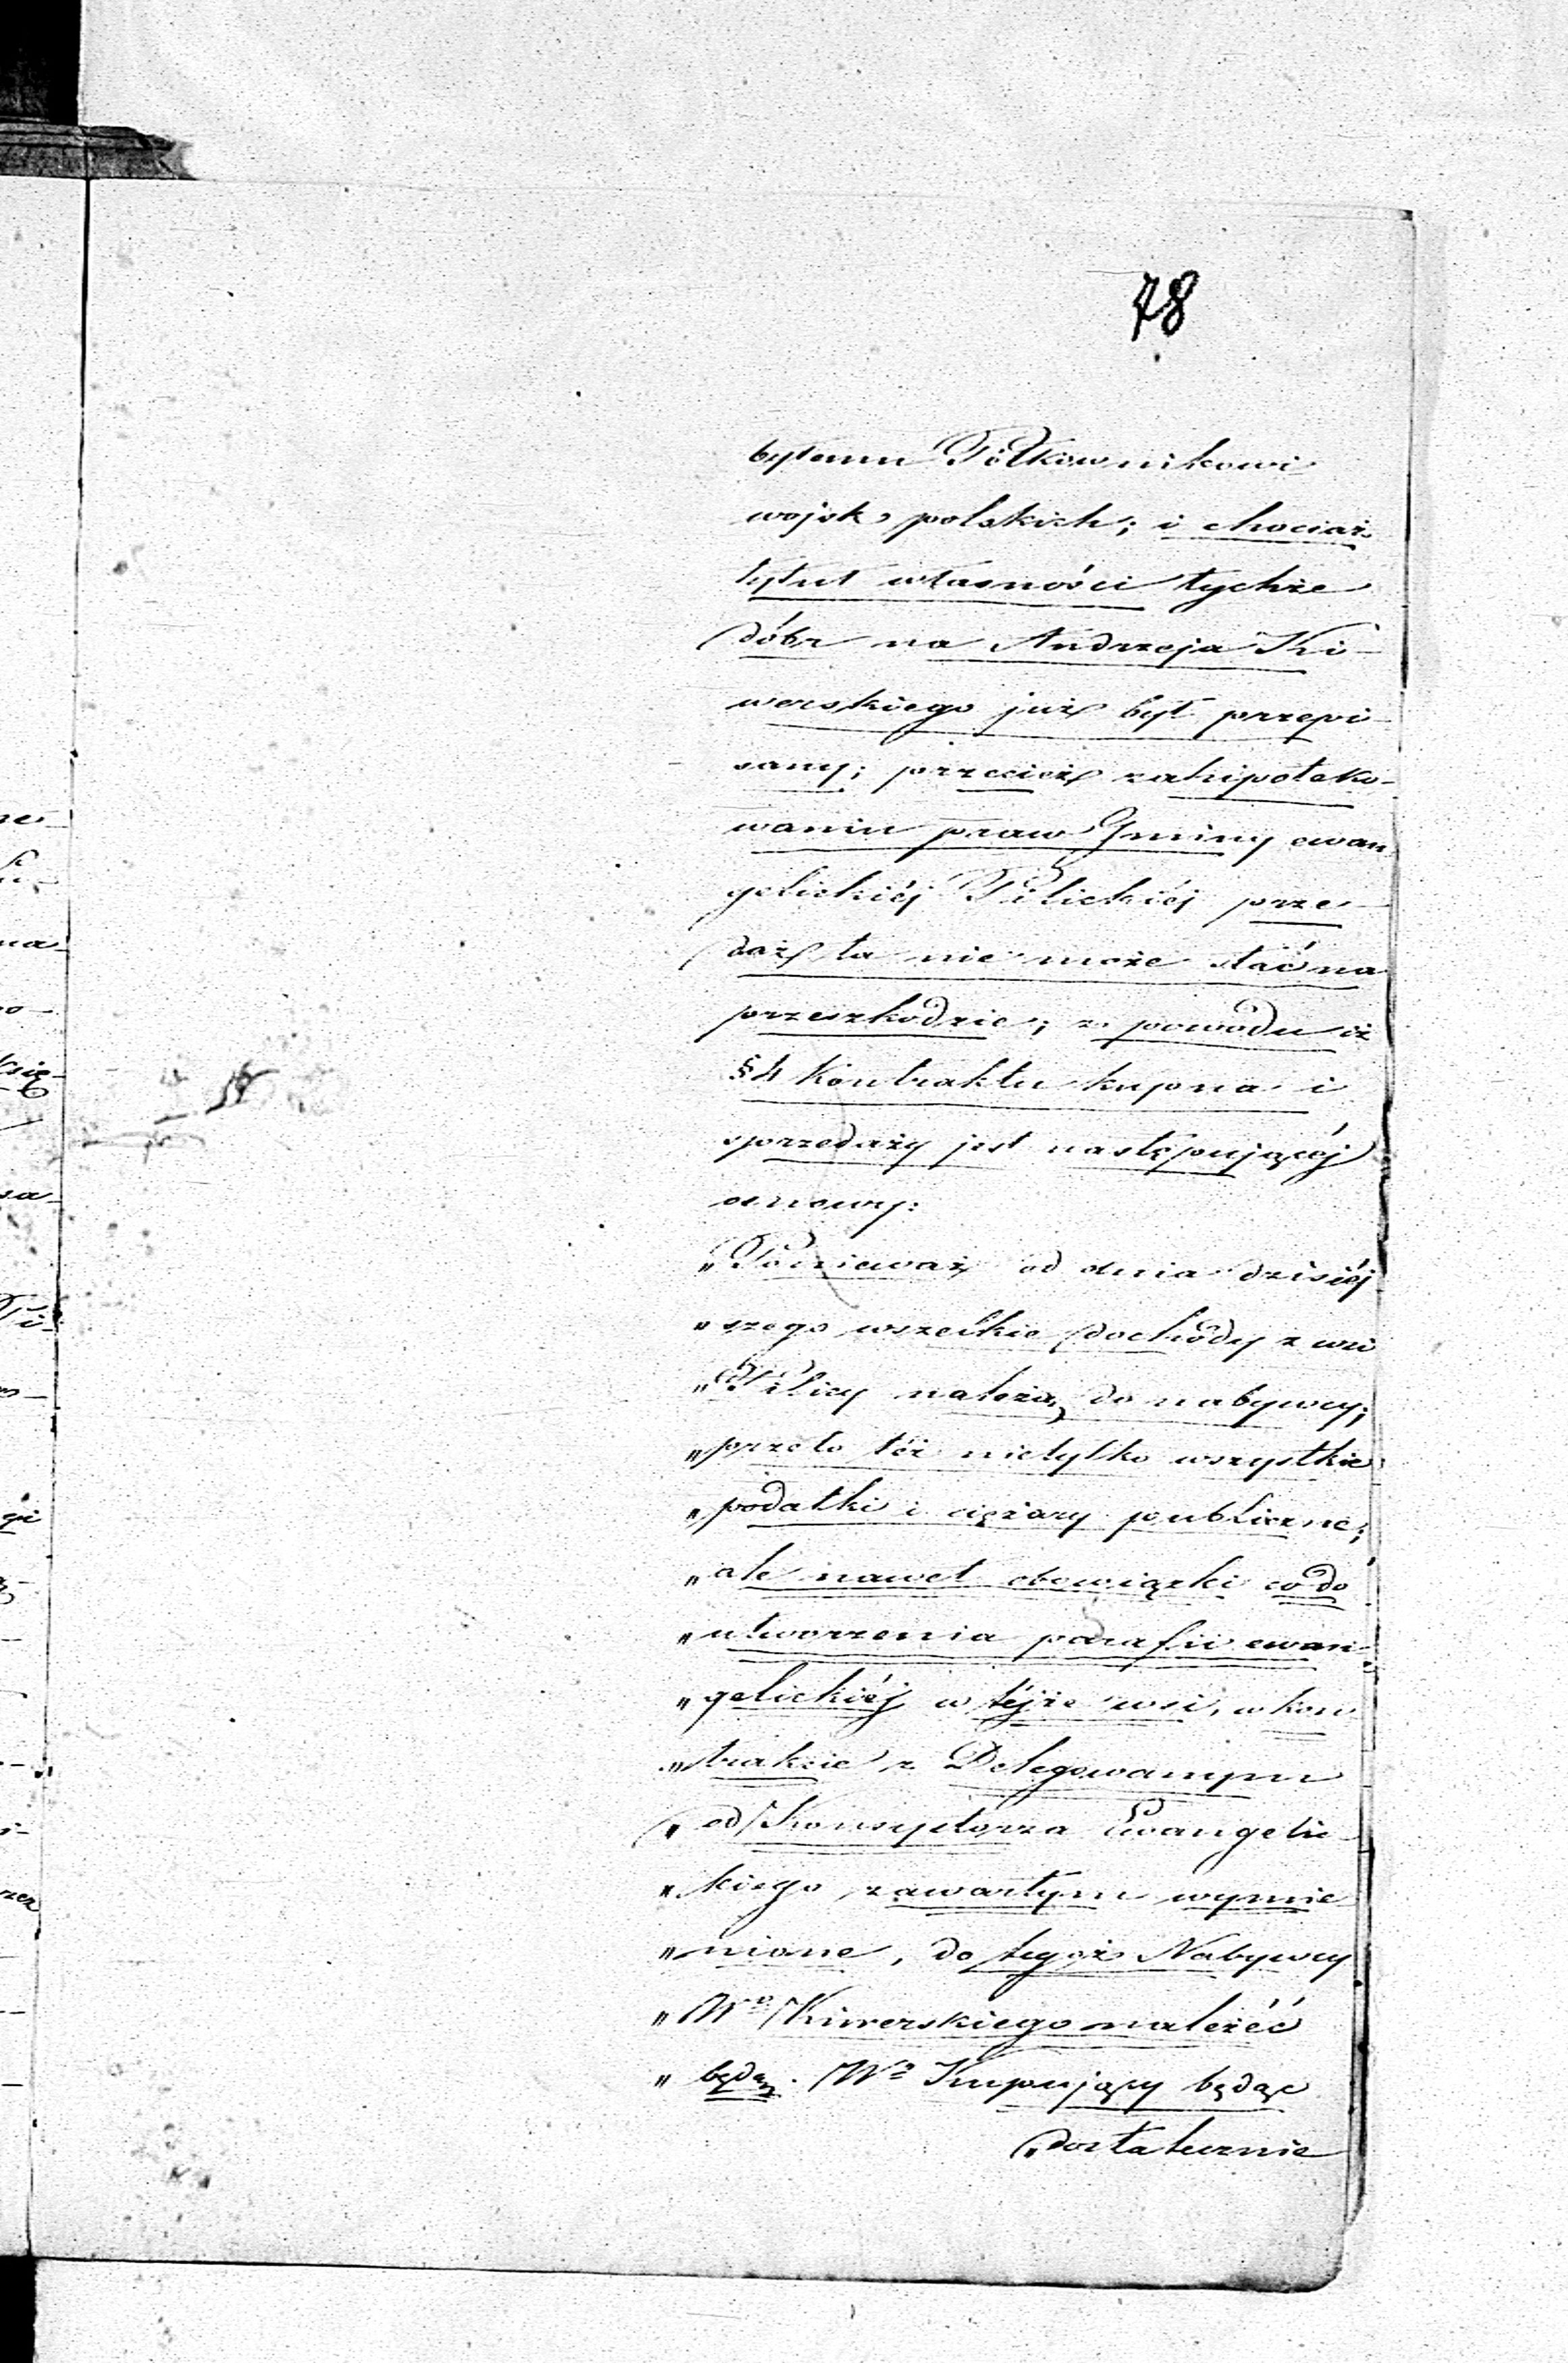 78
byłemu Półkownikowi
wojsk polskich; i chociaż
tytuł własności tychże
dóbr na Andrzeja Ki-
werskiego już był przepi-
sany; przecież zahipoteko-
waniu praw Gminy ewan
gelickiéj Pilickiéj prze-
daż ta nie może stać na
przeszkodzie; z powodu iż
§ 4 Kontraktu kupna i
sprzedaży jest następującéj
osnowy:
„Ponieważ od dnia dzisiéj
„szego wszelkie dochody z wsi
„Pilicy należą do nabywcy;
„przeto téż nietylko wszystkie
„podatki i ciężary publiczne;
„ale nawet obowiązki co do
„utworzenia parafii ewan-
„gelickiéj w téjże wsi, w kon
„trakcie z Delegowanym
„od Konsystorza Ewangelic-
„kiego zawartym wymie
„nione, do tegoż Nabywcy
„Wo Kiwerskiego należéć
„będą. Wo Kupujący będąc
„dostatecznie